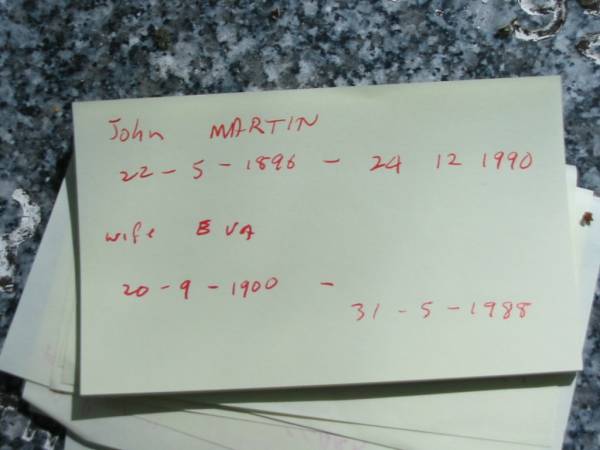 John MARTIN
22-5-1896 - 24 12 1990
wife EVA
20-9-1900 -
31-5-1988